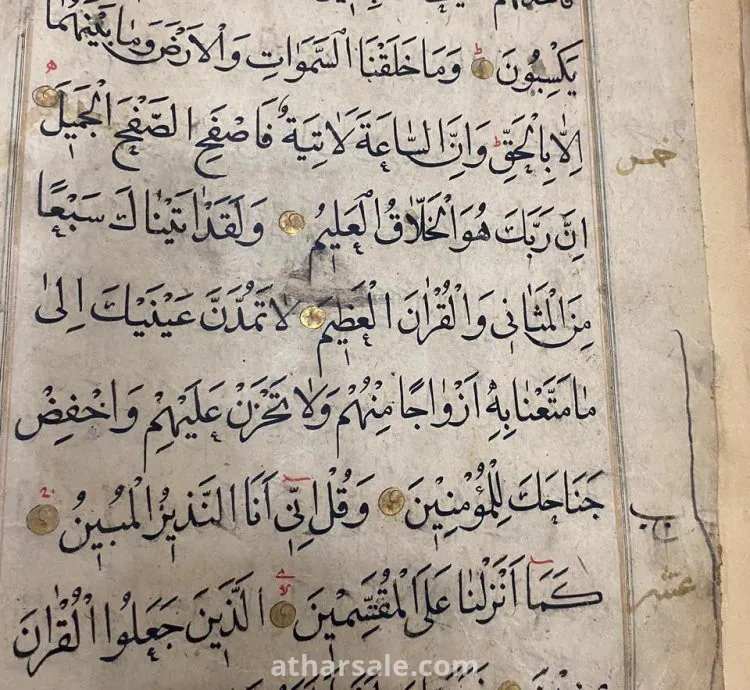 يَكْسِبُونَ وَمَا خَلَقْنَا السَّمٰوَاتِ وَالْاَرْضَ وَمَا بَيْنَهُمَا
اِلَّا بِالْحَقِّ وَاِنَّ السَّاعَةَ لَاٰتِيَةٌ فَاصْفَحِ الصَّفْحَ الْجَمِيلَ
خمس
اِنَّ رَبَّكَ هُوَ الْخَلَّاقُ الْعَلِيمُ وَلَقَدْ اٰتَيْنَاكَ سَبْعًا
مِنَ الْمَثَانِى وَالْقُرْاٰنَ الْعَظِيمَ لَا تَمُدَّنَّ عَيْنَيْكَ اِلٰى
مَا مَتَّعْنَا بِهِ اَزْوَاجًا مِنْهُمْ وَلَا تَحْزَنْ عَلَيْهِمْ وَاخْفِضْ
جَنَاحَكَ لِلْمُؤْمِنِينَ وَقُلْ اِنِّى اَنَا النَّذِيرُ الْمُبِينُ
كَمَا اَنْزَلْنَا عَلَى الْمُقْتَسِمِينَ الَّذِينَ جَعَلُوا الْقُرْاٰنَ
عشر
atharsale.com